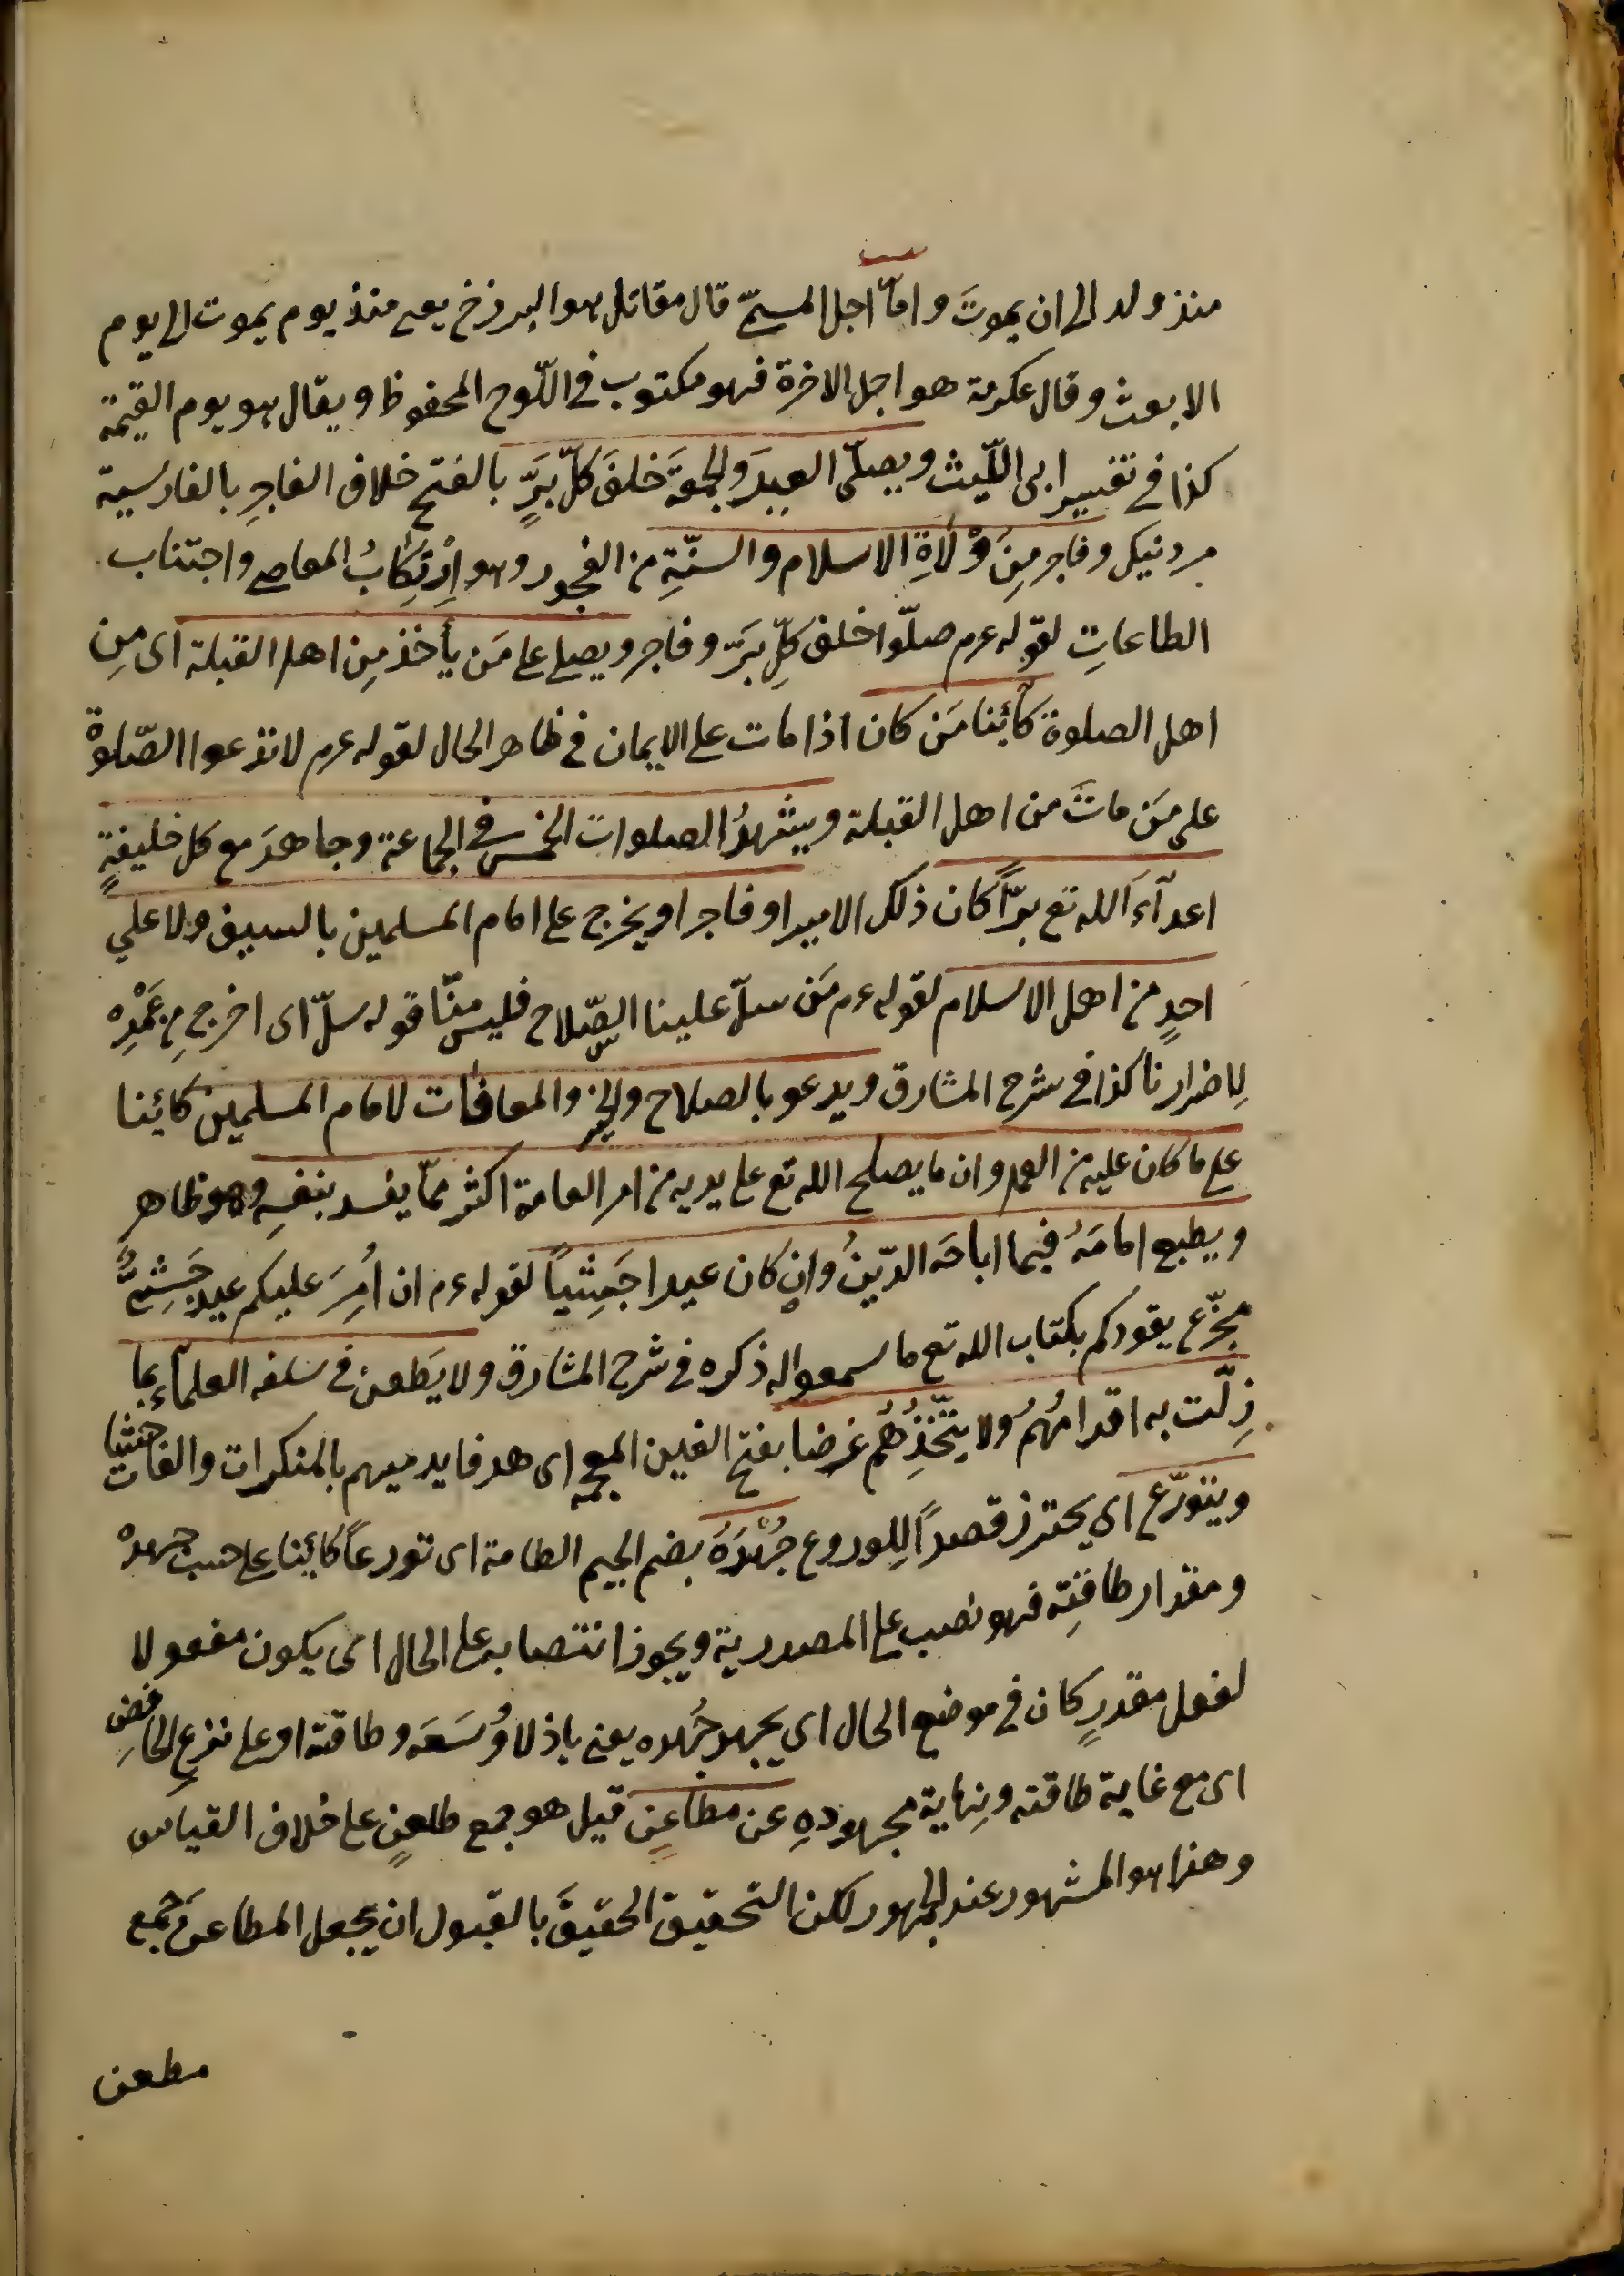 منذ ولد الى ان يموتَ واما اجل المسمّى قال مقاتل هو البرزخ يعنى منذ يوم يموت الى يوم
الا بعث وقال عكرمة هو اجل الاخرة فهو مكتوب فى اللّوح المحفوظ ويقال هو يوم القيمة
كذا فى تفسير ابى اللّيث ويصلّى العيدَ والجمعةَ خلفَ كلّ بَرٍّ بالفتح خلاف الفاجرِ بالفارسية
مرد نيك وفاجر مِن وُلَاةِ الاسلام والسنّةِ من الفجور وهو اِرْتِكابُ المعاصى واجتناب
الطاعاتِ لقوله عرم صلّوا خلف كلِّ بَرّ وفاجر ويصلى على مَن يأخذ مِن اهل القبلة اى مِن
اهل الصلوة كآئنا مَن كان اذا مات على الايمان فى ظاهر الحال لقوله عرم لا تدعوا الصّلوةْ
على مَن ماتَ من اهل القبلة ويشهدُ الصلوات الخمس فى الجماعة وجاهدَ مع كل خليفةٍ
اعدآءَ الله تع برًّا كان ذلك الامير او فاجرا ويخرج على امام المسلمين بالسيف ولا على
احدٍ من اهل الاسلام لقوله ءم مَن سلّ علينا السِّلاح فليس منّا قوله سلّ اى اخرج مِن غَمْدِه
لِاضرارنا كذا فى شرح المشارق ويدعو بالصلاح والخير والمعافات لامام المسلمين كائنا
على ما كان عليه من العمد وان ما يصلح الله تع على يديه من امر العامة اكثر ممّا يفسد بنفسِه وهو ظاهر
ويطيع امامَهُ فيما اباحَه الدّينُ وان كان عبدا حَبشِيًا لقوله ءم ان اُمِرَ عليكم عبد حَبَشِىٌّ
مجدّع يقودكم بكتاب الله تع ما سمعوا له ذكره فى شرح المشارق ولا يَطعن فى سلفه العلمآء بما
زِلّت به اقدامُهُم ولا يتّخذُهُم غرضا بفتح الغين المعجمه اى هدفا يرميهم بالمنكرات والفاحشيات
ويتورّع اى يحترز قصداً لِلورع جُهْدَهُ بضم الجيم الطامة اى تورعاً كائنا على حسب جهدهْ
ومقدار طاقتِه فهو نصب على المصدرية ويجوز انتصابه على الحال اى يكون مفعولا
لفعل مقدرٍ كان فى موضع الحال اى يجهد جُهده يعنى باذلا وُسَعَه وطاقته او على نزع الخافض
اى مع غاية طاقته ونهاية مجهودهِ عن مطاعِنٍ قيل هو جمع طعنٍ على خلاف القياس
وهذا هو المشهور عند الجمهور لكن التحقيق الحقيقَ بالقبول ان يجعل المطاعن جمع
مطعن